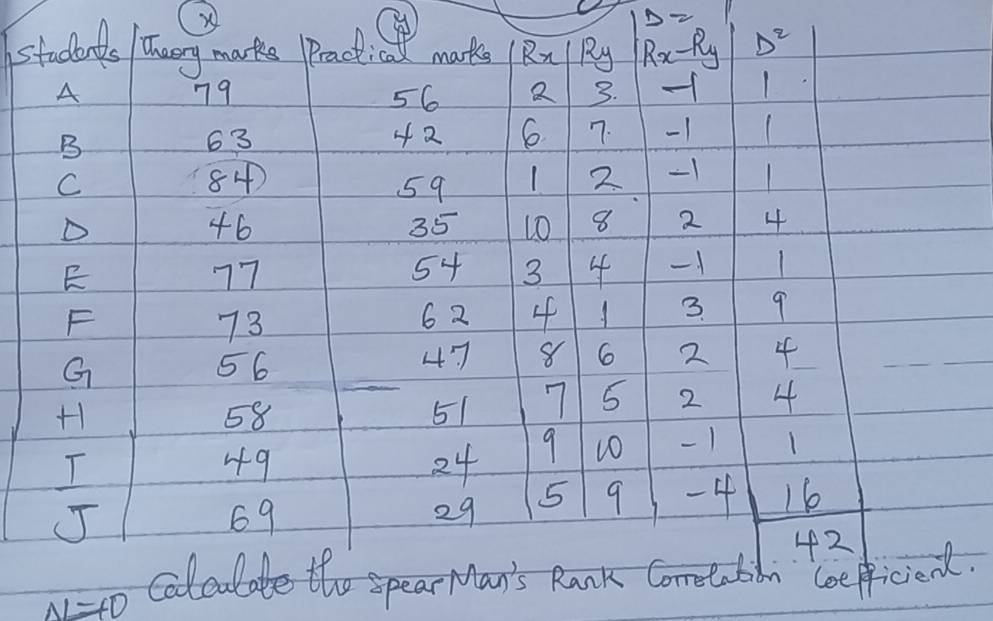 x y D=
Students Theory marks Practical marks Rx Ry Rx-Ry D²
A 79 56 2 3. -1 1
B 63 42 6. 7. -1 1
C 84 59 1 2 -1 1
D 46 35 10 8 2 4
E 77 54 3 4 -1 1
F 73 62 4 1 3. 9
G 56 47 8 6 2 4
H 58 51 7 5 2 4
I 49 24 9 10 -1 1
J 69 29 5 9 -4 16
42
Calculate the spearMan's Rank Correlation Coefficient.
N=10